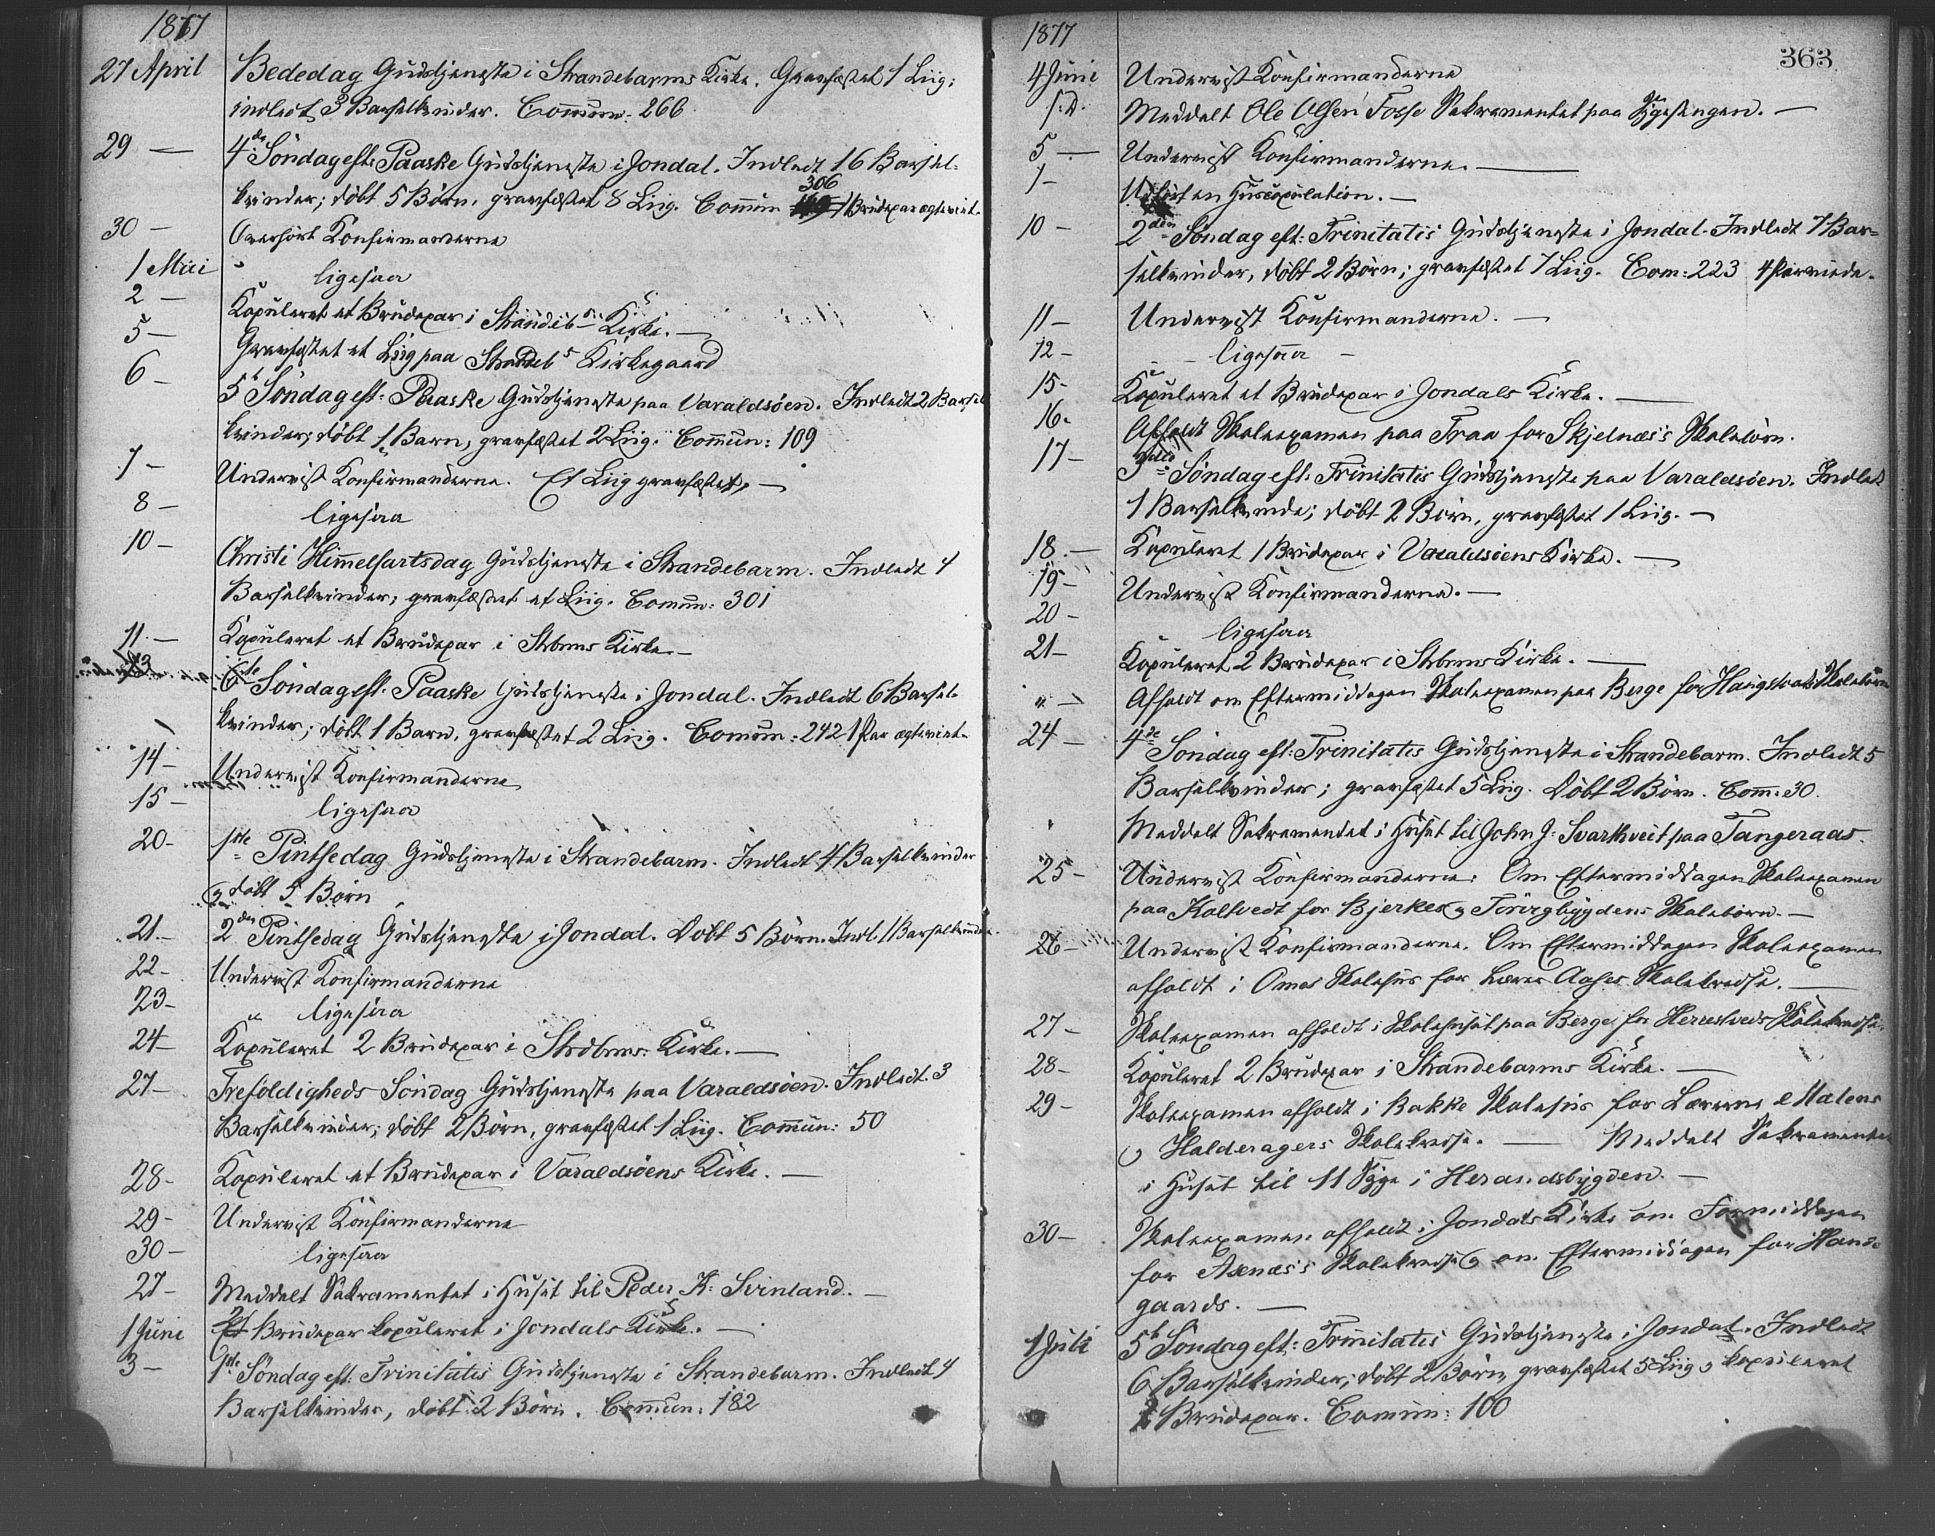 1877
27 April Bededag Gudstjeneste i Strandebarms Kirke. Gravfæstet 1 Liig;
indledt 3 Barselkvinder. Commun: 266
29 — 4de Söndag eft: Paaske Gudstjeneste i Jondal. Indledt 16 Barsel-
kvinder; döbt 5 Börn, gravfæstet 8 Liig. Commun 306 1 Brudepar ægteviet.
30 — Overhört Konfirmanderne
1 Mai " ligesaa
2 — Kopuleret et Brudepar i Strandeb.s Kirke. —
5 — Gravfæstet et Liig paa Strandebs Kirkegaard
6 — 5t Söndag eft: Paaske Gudstjeneste paa Varaldsöen. Indledt 2 Barsel
kvinder; döbt 1 Barn, gravfæstet 2 Liig. Commun: 109
7 — Underviist Konfirmanderne. Et Liig gravfæstet. —
8 — ligesaa
10 — Christi Himmelfartsdag Gudstjeneste i Strandebarm. Indledt 4
Barselkvinder; gravfæstet et Liig. Comun: 301
11. — Kopuleret et Brudepar i Stbrms Kirke. —
13 6te Söndag eft. Paaske Gudstjeneste i Jondal. Indledt 6 Barsel-
kvinder; döbt 1 Barn, gravfæstet 2 Liig. Comun: 242 1 Par ægteviet.
14 — Underviist Konfirmanderne
15 — ligesaa
20 - 1ste Pintsedag Gudstjeneste i Strandebarm. Indledt 4 Barselkvinder
og döbt 5 Börn
21. — 2den Pintsedag Gudstjeneste i Jondal. Döbt 5 Börn. Indl. 1 Barselkvinde.
22 - Underviist Konfirmanderne
23 - " ligesaa
24 — Kopuleret 2 Brudepar i Strdbrms: Kirke. —
27 — Trefoldigheds Söndag Gudstjeneste paa Varaldsöen. Indledt. 3
Barselkvinder; döbt 2 Börn, gravfæstet 1 Liig. Commun: 50
28 - Kopuleret et Brudepar i Varaldsöens Kirke. —
29 - Underviist Konfirmanderne
30 — ligesaa
27 — Meddelt Sakramentet i Huset til Peder K: Svinland. —
1 Juni Brudepar kopuleret i Jondals Kirke. —
3 — 1ste Söndag eft. Trinitatis Gudstjeneste i Strandebarm. Indledt 4
Barselkvinder, döbt 2 Börn. Commun: 182
1877
363
4 Juni Underviist Konfirmanderne
s.D. Meddelt Ole Olsen Fosse Sakramentet paa Sygesengen. —
5 — Underviist Konfirmanderne. —
7 - Udfört en Huuscopulation. —
10 - 2den Söndag eft: Trinitatis Gudstjeneste i Jondal. Indledt 7 Bar=
selkvinder, döbt 2 Börn; gravfæstet 7 Liig. Com: 223 4 Par viede.
11 — Underviist Konfirmanderne. —
12 - " ligesaa —
15 - Kopuleret et Brudepar i Jondals Kirke. —
16. Afholdt Skoleexamen paa Traa for Skjelnæs's Skolebörn.
17 — 3die Söndag eft: Trinitatis Gudstjeneste paa Varaldsöen. Indledt
1 Barselkvinde; döbt 2 Börn, gravfæstet 1 Liig. —
18. — Kopuleret 1 Brudepar i Varaldsöens Kirke. —
19 - Underviist Konfirmanderne. —
20 — ligesaa
21 — Kopuleret 2 Brudepar i Stbrms Kirke. —
" — Afholdt om Eftermiddagen Skoleexamen paa Berge for Skolebörn
24 — 4de Söndag eft: Trinitatis Gudstjeneste i Strandebarm. Indledt 5
Barselkvinder; gravfæstet 5 Liig. Döbt 2 Börn. Comm: 30.
" Meddelt Sakramentet i Huset til John J: Svarthveit paa Tangeraas.
25 — Underviist Konfirmanderne. Om Eftermiddagen Skoleexamen
paa Koltvedt for Bjerke og Skolebörn. —
26 — Underviist Konfirmanderne. Om Eftermiddagen Skoleexamen
afholdt i Omes Skolehus for Lærer Aases Skolekreds. —
27 — Skoleexamen afholdt i Skolehuset paa Berge for Skolekreds.
28 — Kopuleret 2 Brudepar i Strandebarms Kirke. —
29 - Skoleexamen afholdt i Bakke Skolehus for Lærerne Malens
og Halderagers Skolekredse. — Meddelt Sakramentet
i Huset til 11 Syge i Herandsbygden. —
30 — Skoleexamen afholdt i Jondals Kirke om Formiddagen
for Axnæs's Skolekreds og om Eftermiddagen for
gaards. —
1 Juli 5t Söndag eft: Trinitatis Gudstjeneste i Jondal. Indledt
6 Barselkvinder; döbt 2 Börn, gravfæstet 5 Liig og kopuleret
Brudepar. Comun: 100